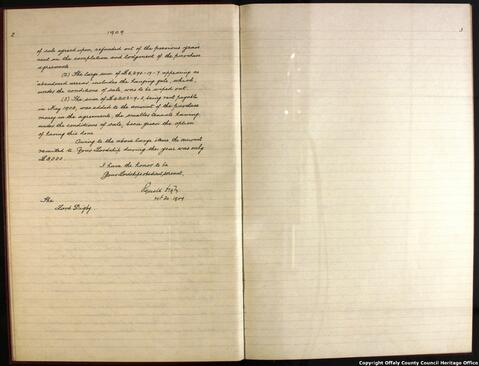 2
1909
of sale agreed upon, refunded out of the previous years
rent on the completion and lodgement of the purchase
agreements
(2) The large sum of £ 6,290-19-7 appearing as
abandoned arrear includes the hanging gale, which,
under the conditions of sale, was to be wiped out.
(3) The sum of £ being rent payable
in May 1908, was added to the amount of the purchase
money in the agreements, the smallest tenants having,
under the conditions of sale, been given the option
of having this done
Owing to the above large items the amount
remitted to Your Lordship during the year was only
£
I have the honor to be
Your Lordships obedient servant,
Reginald Digby
20 1909
The
Lord Digby.
3
Copyright Offaly County Council Heritage Office